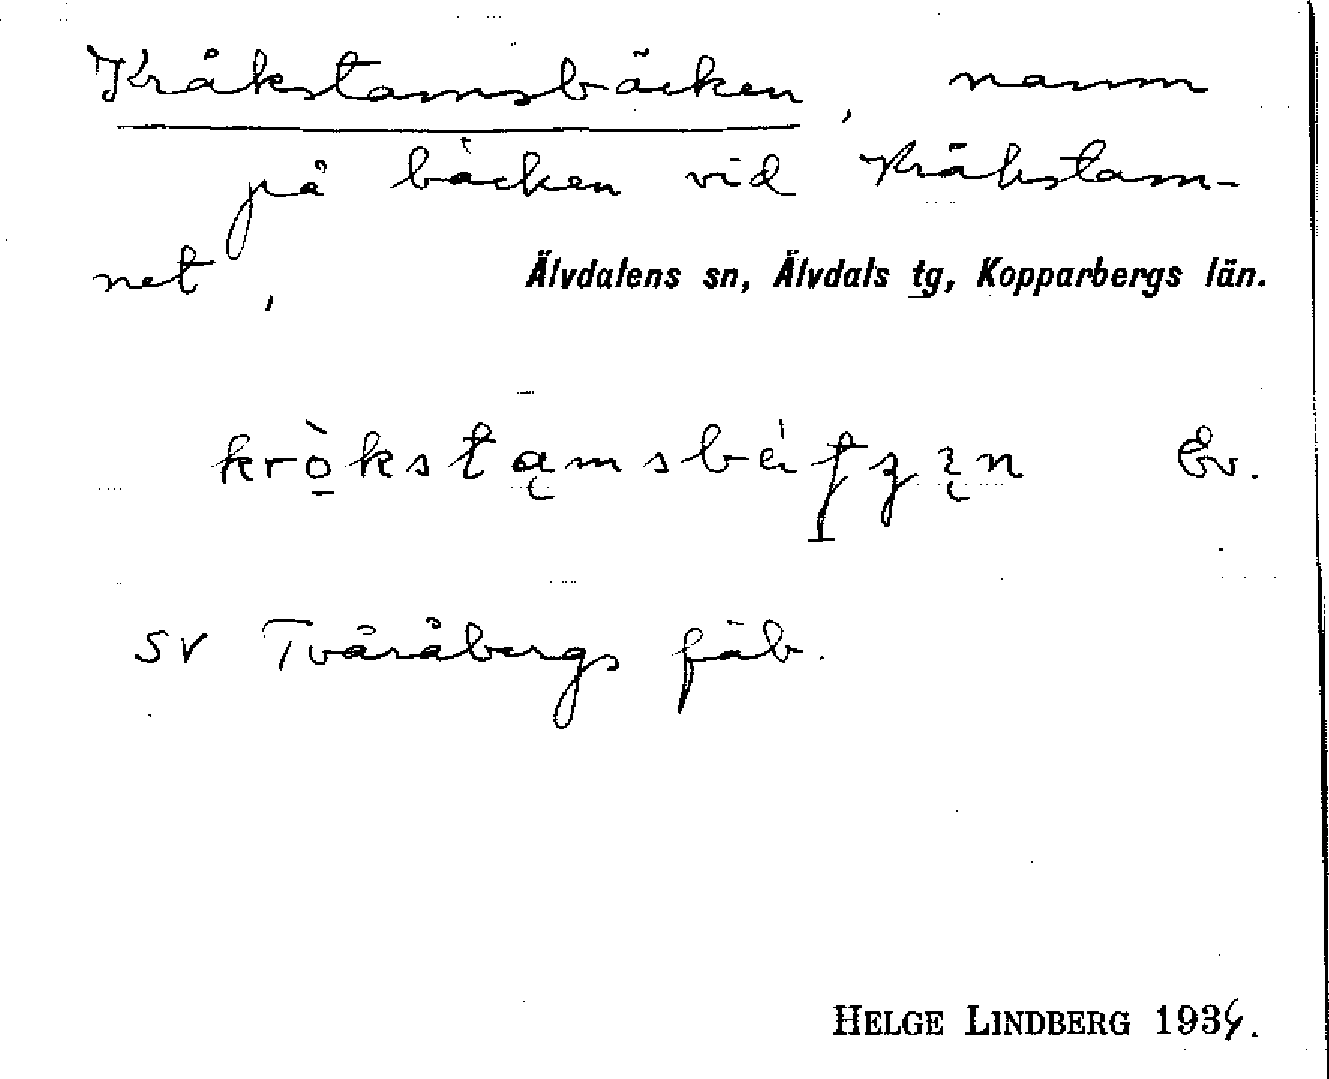 Kråkstamsbäcken, namn
på bäcken vid Kråkstam-
net, Älvdalens sn, Älvdals tg, Kopparbergs län.
Ev.
SV Tvåråbergs fäb.
HELGE LINDBERG 1934.